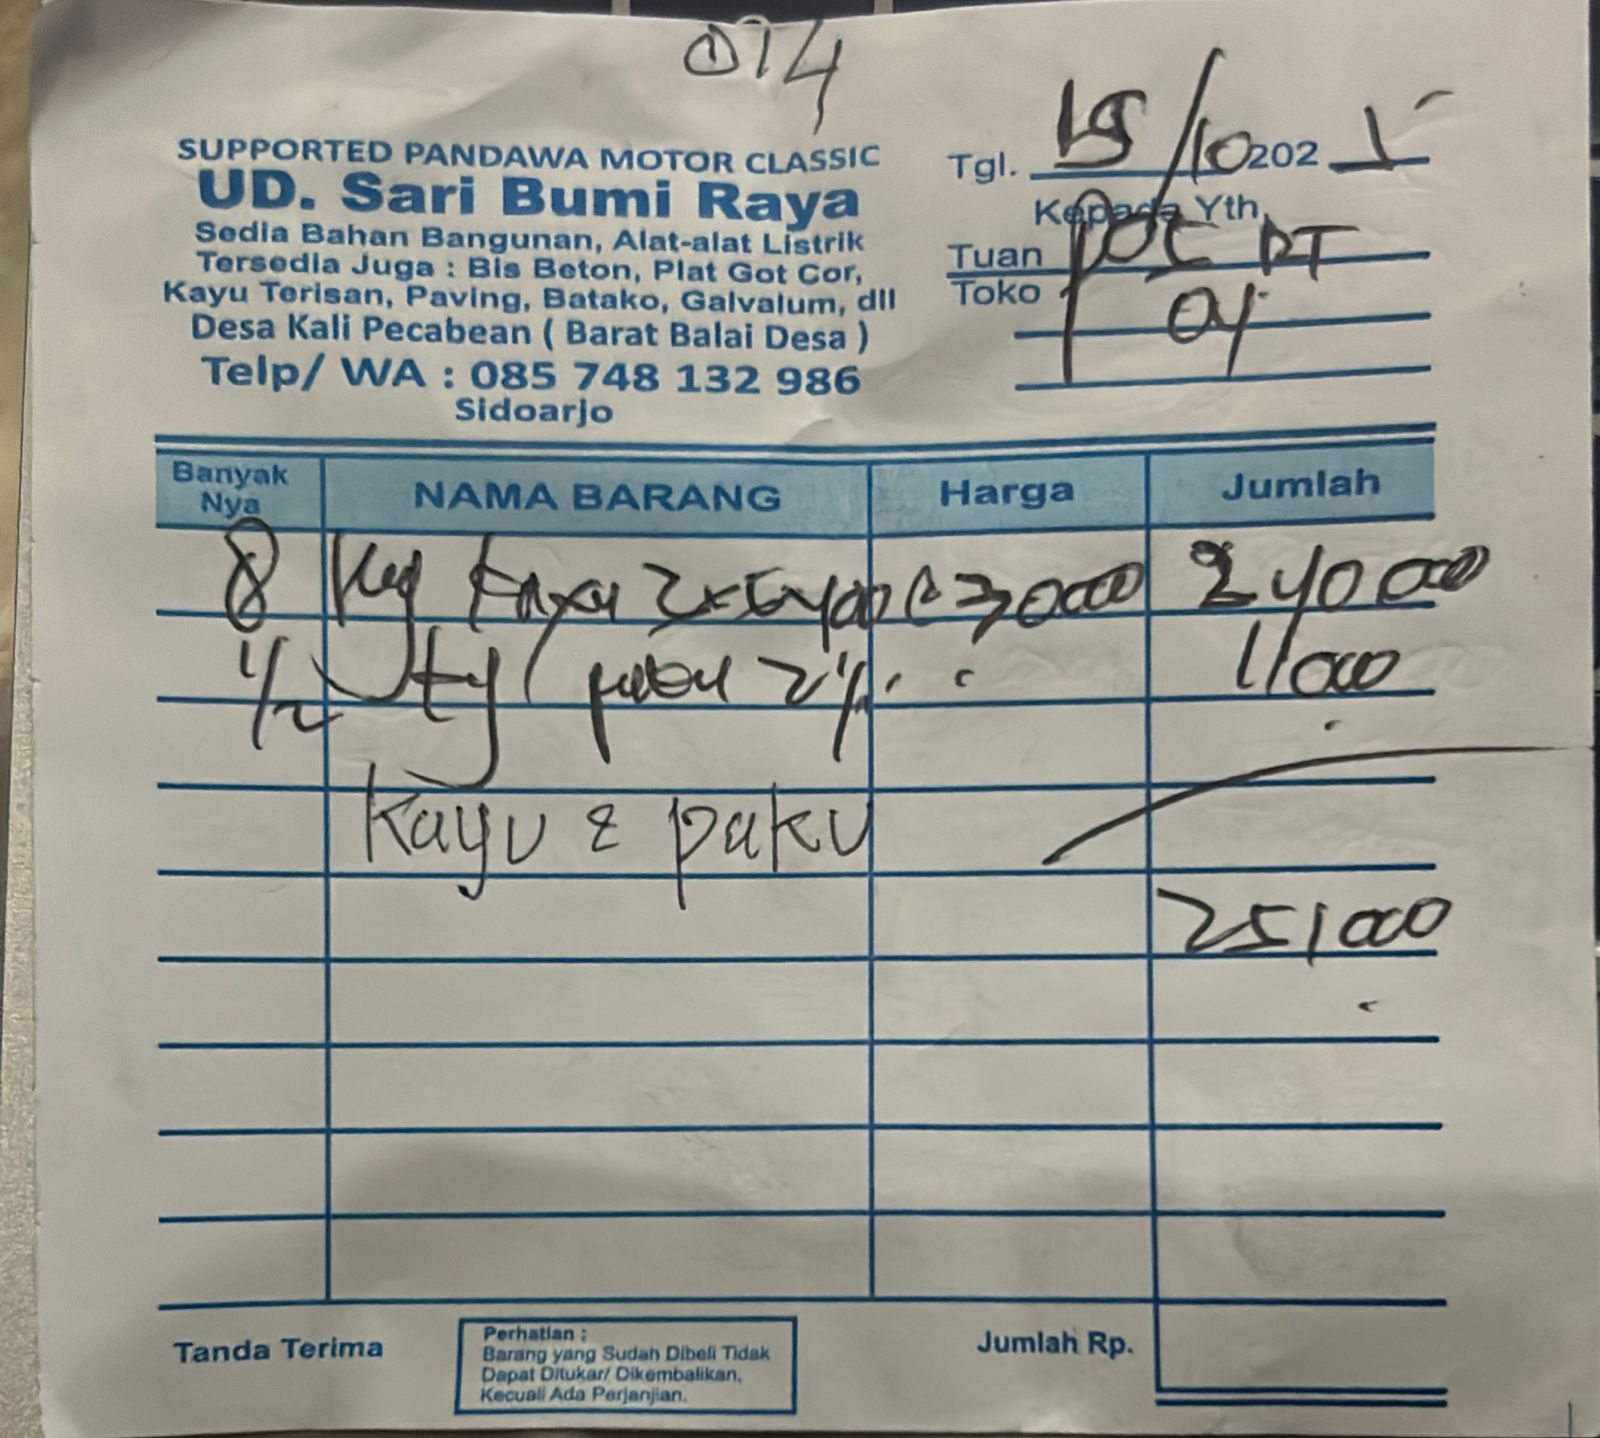 014
SUPPORTED PANDAWA MOTOR CLASSIC
UD. Sari Bumi Raya
Sedia Bahan Bangunan, Alat-alat Listrik
Tersedia Juga : Bis Beton, Plat Got Cor,
Kayu Terisan, Paving, Batako, Galvalum, dll
Desa Kali Pecabean ( Barat Balai Desa )
Telp/ WA : 085 748 132 986
Sidoarjo
Tgl. 15/10 202 5
Kepada Yth,
Tuan RT
Toko 04
Banyak Nya NAMA BARANG Harga Jumlah
8 Kayu 30000 240 000
1/2 11000
Kayu & paku
251000
Tanda Terima
Perhatian :
Barang yang Sudah Dibeli Tidak
Dapat Ditukar/ Dikembalikan,
Kecuali Ada Perjanjian.
Jumlah Rp.